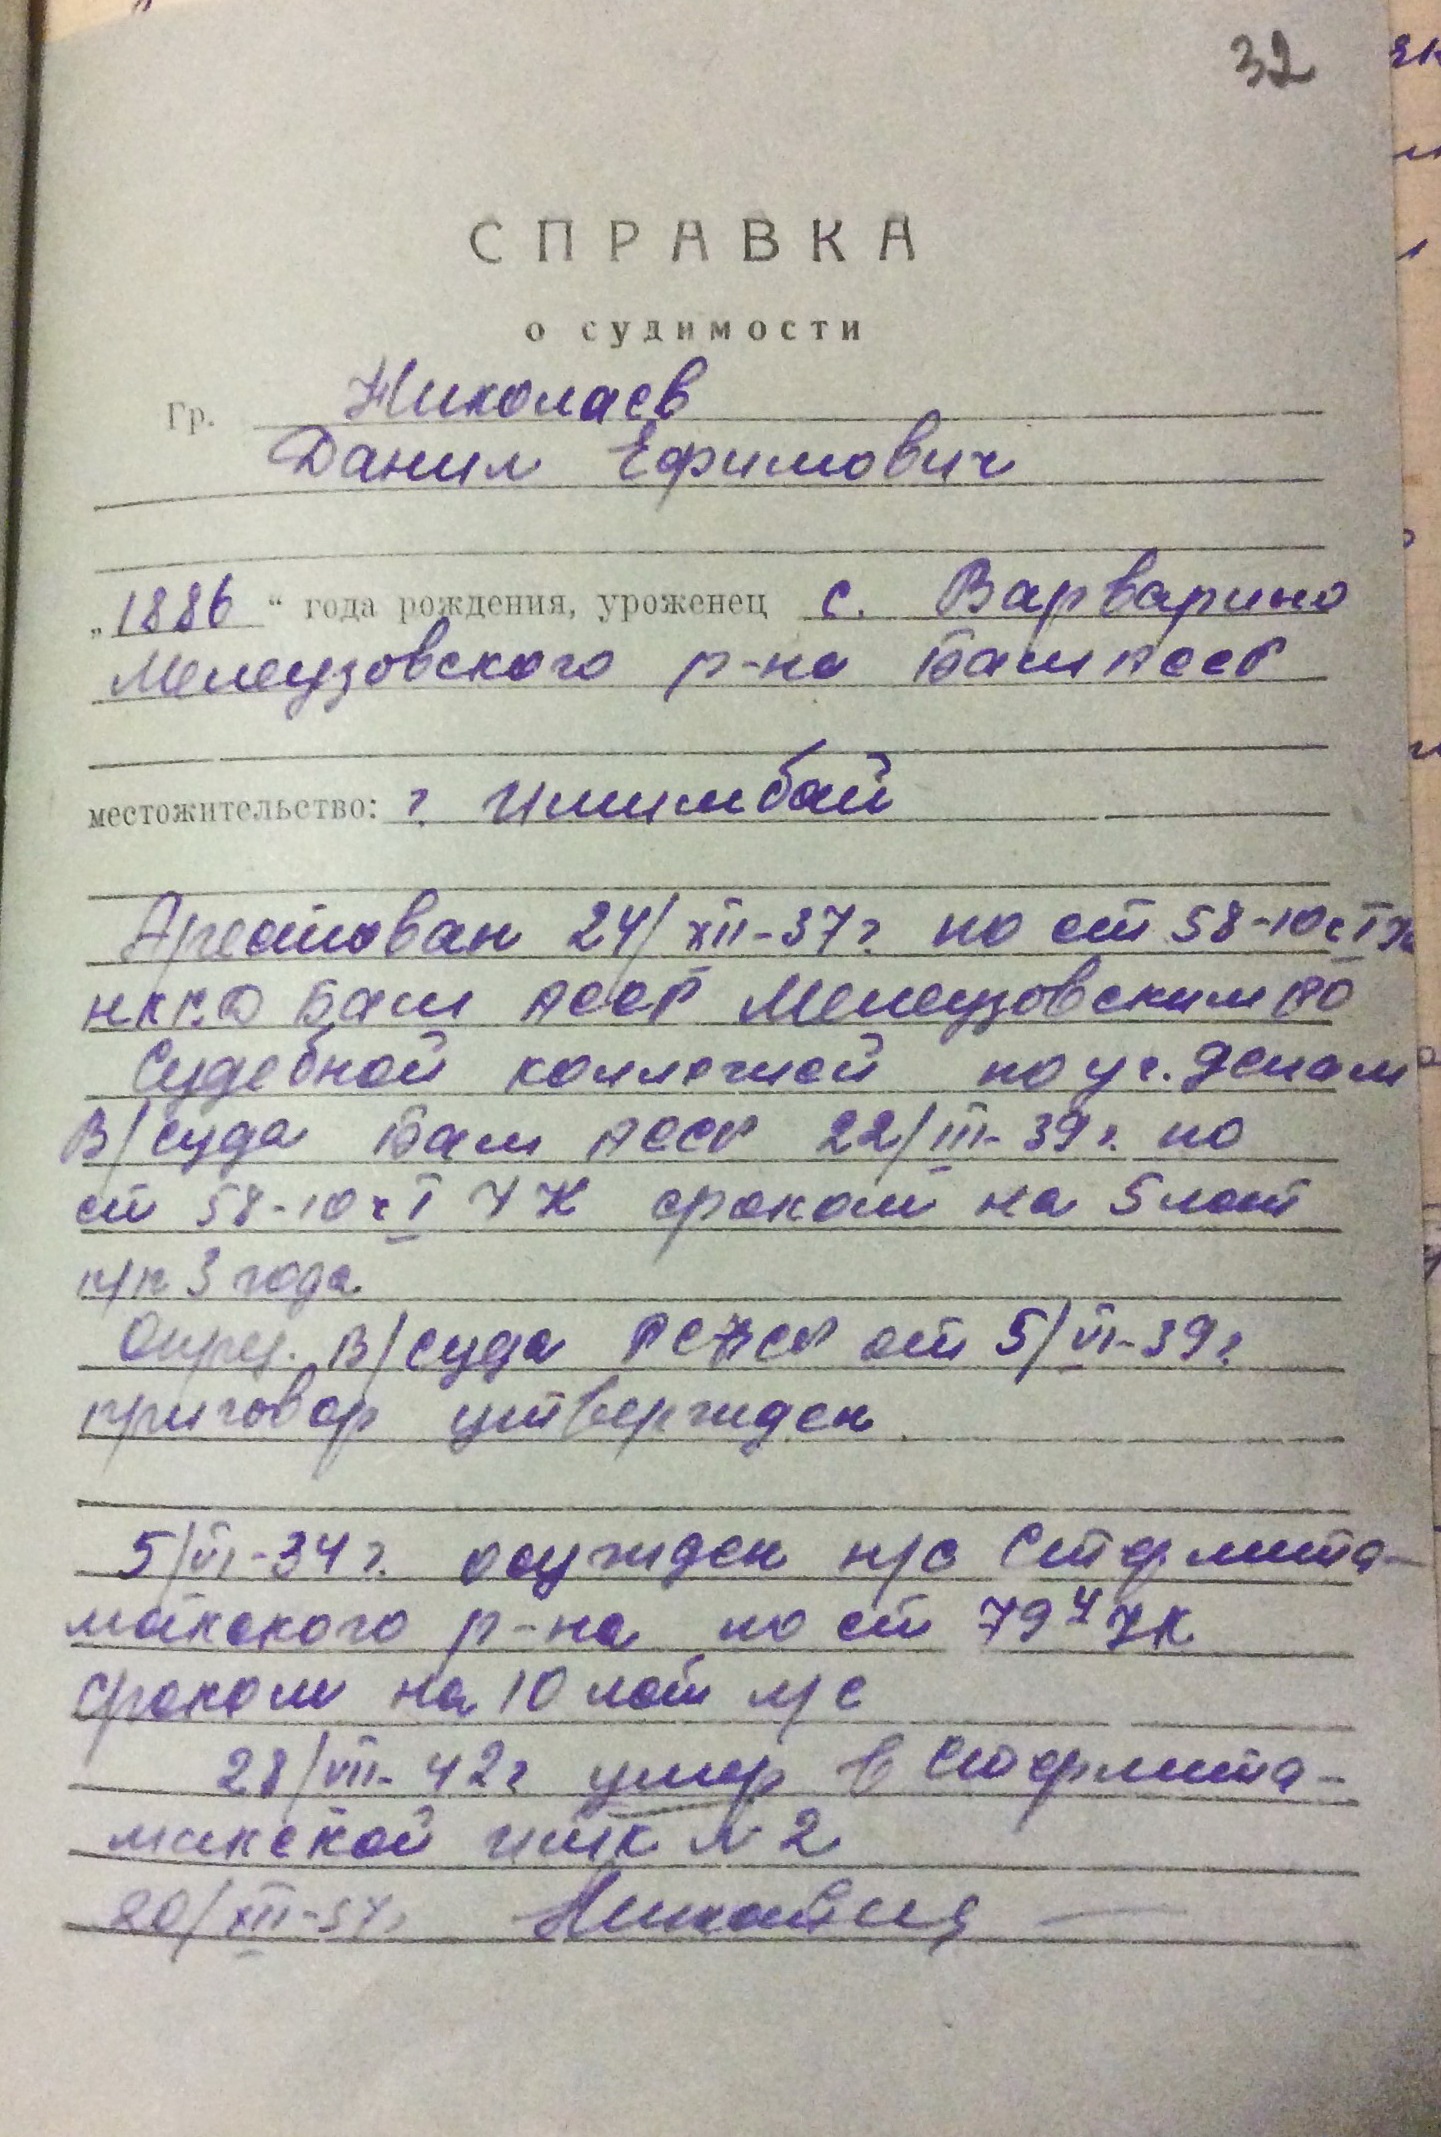 32
СПРАВКА
о судимости
Гр. Николаев
Данил Ефимович
„1886“ года рождения, уроженец с. Варварино
Мелеузовского р-на БашАССР
местожительство: г. Ишимбай
Арестован 24/XII-37г. по ст 58-10 ч I УК
НКВД Баш АССР Мелеузовским РО
Судебной коллегией по уг. делам
В/суда Баш АССР 22/III-39г. по
ст 58-10 ч I УК сроком на 5 лет
п/п 3 года
Опред. В/суда РСФСР от 5/VI-39г.
приговор утвержден
5/VI-34г. осужден н/с Стерлита-
макского р-на по ст 79⁴ УК
сроком на 10 лет л/с
28/VII-42г умер в Стерлита-
макской ИТК N 2
20/XII-57г.